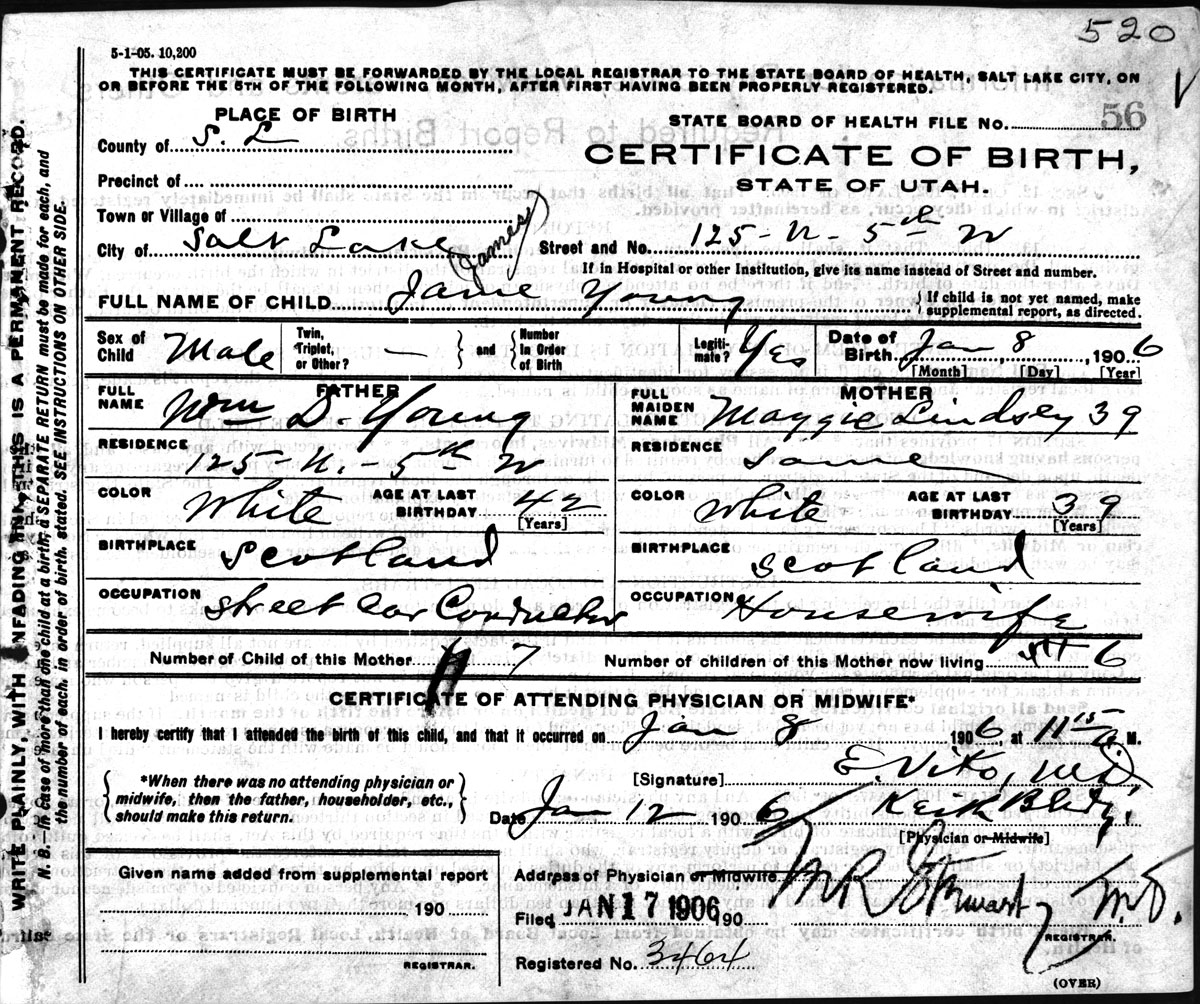 520
5-1-05. 10,200
THIS CERTIFICATE MUST BE FORWARDED BY THE LOCAL REGISTRAR TO THE STATE BOARD OF HEALTH, SALT LAKE CITY, ON
OR BEFORE THE 5TH OF THE FOLLOWING MONTH, AFTER FIRST HAVING BEEN PROPERLY REGISTERED.
PLACE OF BIRTH
STATE BOARD OF HEALTH FILE No. 56
County of S. L
CERTIFICATE OF BIRTH,
Precinct of
STATE OF UTAH.
Town or Village of
City of Salt Lake Street and No. 125-N-5th W
If in Hospital or other Institution, give its name instead of Street and number.
James
FULL NAME OF CHILD Jame Young { If child is not yet named, make
supplemental report, as directed.
Sex of Child Male Twin, Triplet, or Other? — } and { Number in Order of Birth Legiti-mate? Yes Date of Birth Jan 8, 1906
[Month] [Day] [Year]
FATHER MOTHER
FULL NAME Wm D. Young FULL MAIDEN NAME Maggie Lindsey 39
RESIDENCE 125-N.-5th W RESIDENCE Same
COLOR White AGE AT LAST BIRTHDAY 42 [Years] COLOR White AGE AT LAST BIRTHDAY 39 [Years]
BIRTHPLACE Scotland BIRTHPLACE Scotland
OCCUPATION Street Car Conductor OCCUPATION Housewife
Number of Child of this Mother 7 Number of children of this Mother now living 6
CERTIFICATE OF ATTENDING PHYSICIAN OR MIDWIFE*
I hereby certify that I attended the birth of this child, and that it occurred on Jan 8 1906 at 11 15 A. M.
{ *When there was no attending physician or
midwife, then the father, householder, etc.,
should make this return. }
[Signature] E. Vito, MD
Date Jan 12 1906 Keith Bldg.
[Physician or Midwife]
Given name added from supplemental report
190
REGISTRAR.
Address of Physician or Midwife
Filed JAN 17 1906 190
M.D.
REGISTRAR.
Registered No. 3464
(OVER)
WRITE PLAINLY WITH UNFADING INK—THIS IS A PERMANENT RECORD.
N. B.—In case of more than one child at a birth, a SEPARATE RETURN must be made for each, and
the number of each, in order of birth, stated. SEE INSTRUCTIONS ON OTHER SIDE.